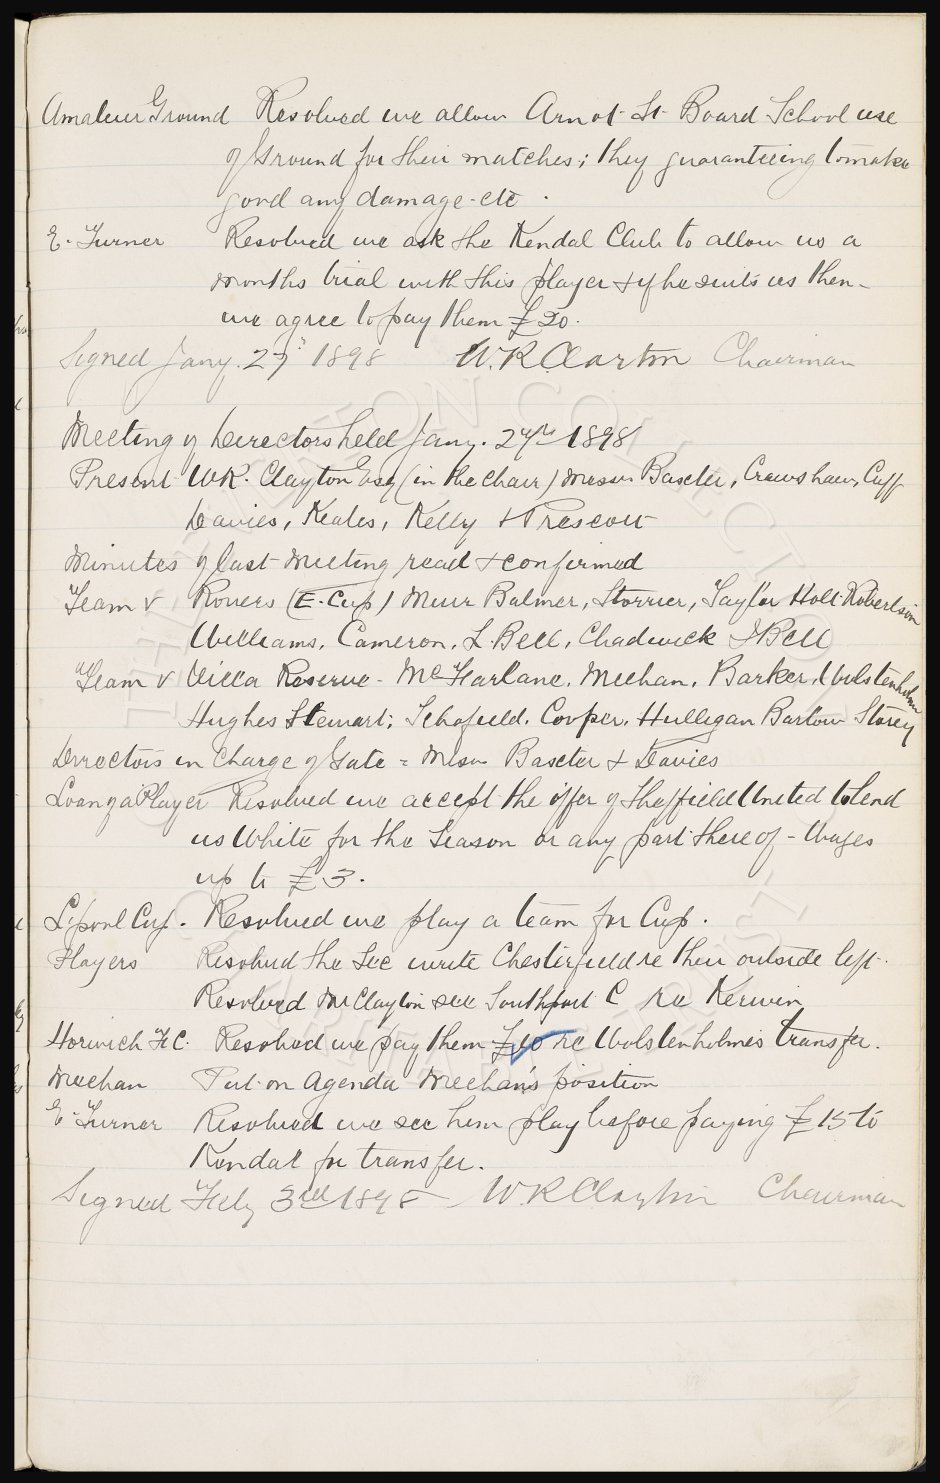 Amateur Ground Resolved we allow Arnot St Board School use
of Ground for their matches; they guaranteeing to make
good any damage etc.
E. Turner Resolved we ask the Kendal Club to allow us a
months trial with this player & if he suits us then
we agree to pay them £20.
Signed Jany. 27" 1898 W.R. Clayton Chairman
Meeting of Directors held Jany. 27th 1898
Present W.R. Clayton Esq (in the chair) Messrs Baxter, Crawshaw, Cuff
Davies, Keates, Kelly & Prescott
Minutes of last meeting read & confirmed
Team v Rovers (E. Cup) Muir Balmer, Storrier, Taylor Holt Robertson
Williams, Cameron, L. Bell, Chadwick J Bell
Team v Villa Reserve - McFarlane, Meehan, Barker, Wolstenholm
Hughes Stewart; Schofield, Cooper, Hulligan Barlow Storey
Directors in Charge of Gate = Messrs Baxter & Davies
Loan of a Player Resolved we accept the offer of Sheffield United to lend
us White for the Season or any part there of - Wages
up to £3.
L'pool Cup. Resolved we play a team for Cup.
Players Resolved the Sec write Chesterfield re their outside left.
Resolved Mr Clayton see Southport C re Kerwin
Horwich F.C. Resolved we pay them £10 re Wolstenholmes transfer.
Meehan Put on Agenda Meehan's position
E. Turner Resolved we see him play before paying £15 to
Kendal for transfer.
Signed Feby 3rd 1898 W R Clayton Chairman
THE EVERTON COLLECTION
CHARITABLE TRUST